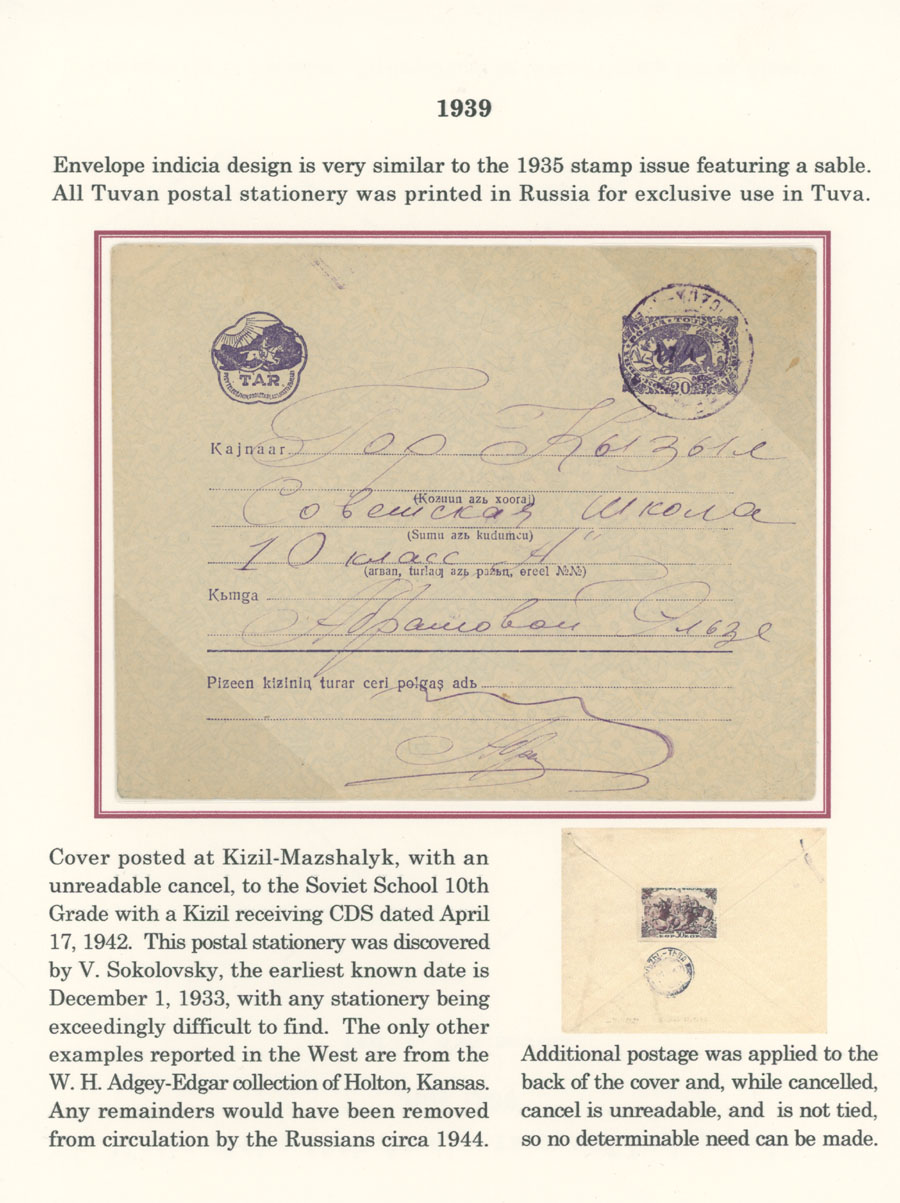 1939
Envelope indicia design is very similar to the 1935 stamp issue featuring a sable.
All Tuvan postal stationery was printed in Russia for exclusive use in Tuva.
TAR
20
Kajnaar Гор Кызыл
(Kozuun azь xooraj)
Советская Школа
(Sumu azь kudumcu)
10 класс "А"
(arвan, turlaq azь pazьn, өreel №№)
Kьmga
Абрамовой Эльзе
Pizeen kiziniŋ turar ceri polgaş adь
Cover posted at Kizil-Mazshalyk, with an
unreadable cancel, to the Soviet School 10th
Grade with a Kizil receiving CDS dated April
17, 1942. This postal stationery was discovered
by V. Sokolovsky, the earliest known date is
December 1, 1933, with any stationery being
exceedingly difficult to find. The only other
examples reported in the West are from the
W. H. Adgey-Edgar collection of Holton, Kansas.
Any remainders would have been removed
from circulation by the Russians circa 1944.
Additional postage was applied to the
back of the cover and, while cancelled,
cancel is unreadable, and is not tied,
so no determinable need can be made.